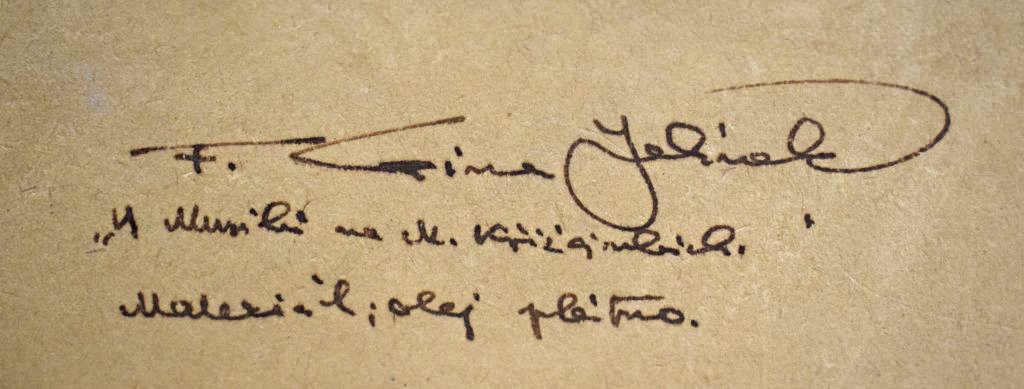 F. Jína Jelínek
„U Musilů na M. Křižánkách."
Materiál; olej plátno.